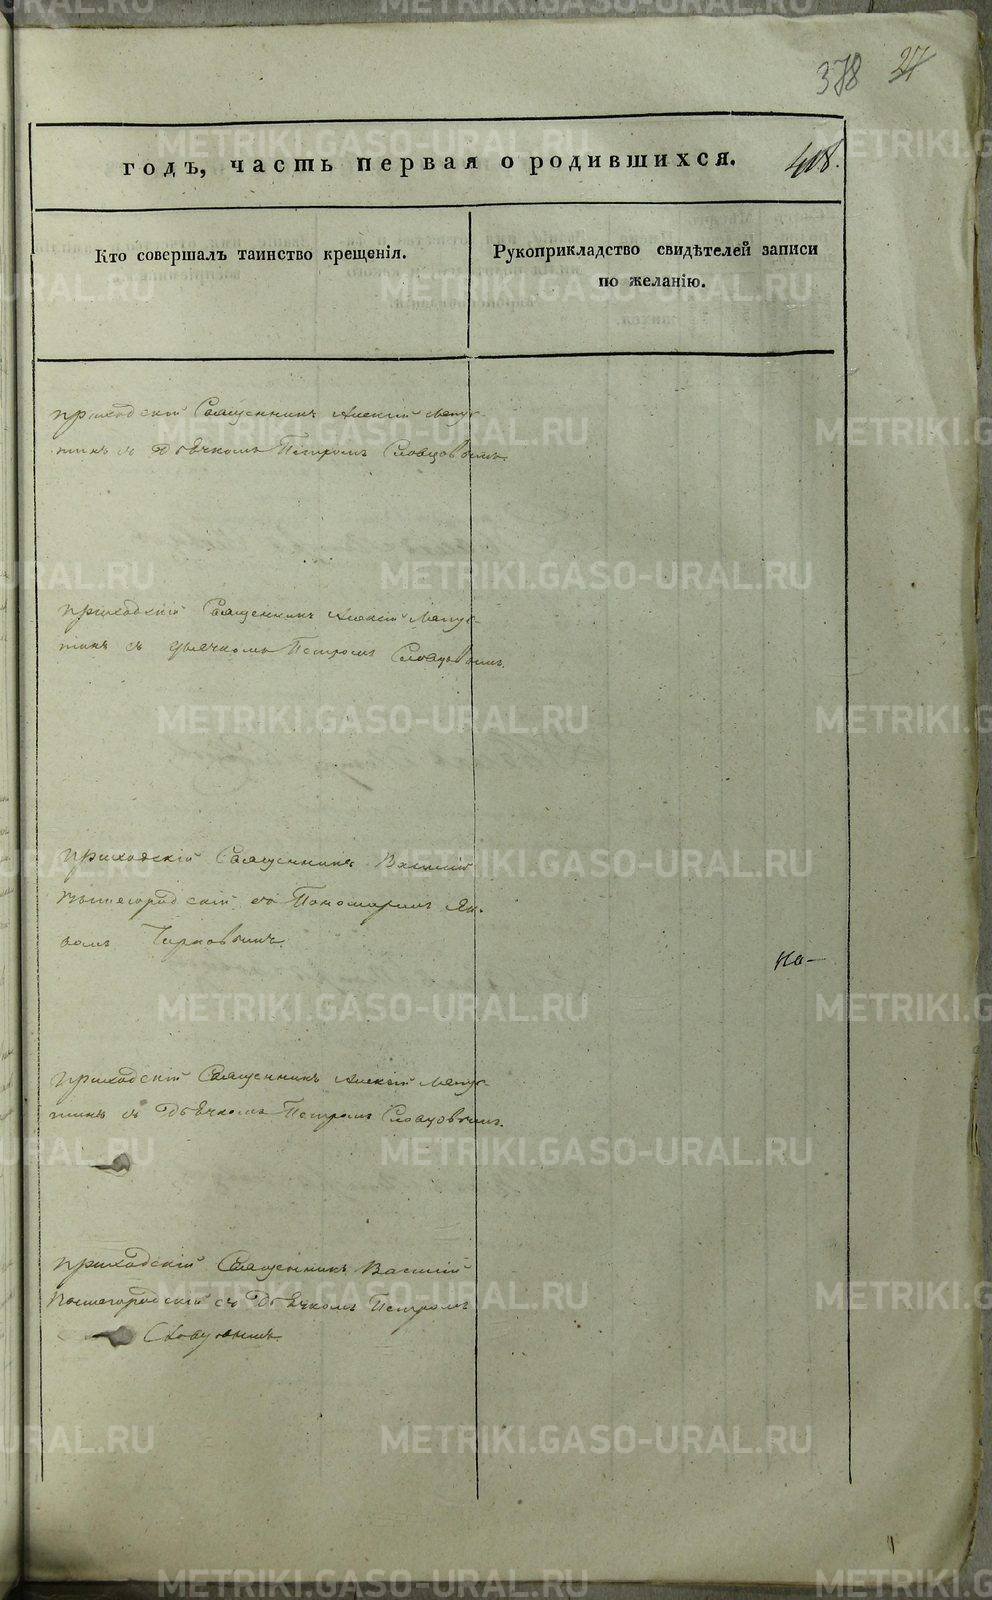 378 27
годъ, часть первая о родившихся. 408.
Кто совершалъ таинство крещенія.
Рукоприкладство свидѣтелей записи
по желанію.
приходскій Священникъ Алексій Лапус-
тинъ съ Дьячкомъ Петромъ Словцовымъ.
приходскій Священникъ Алексій Лапус-
тинъ съ дьячкомъ Петромъ Словцовымъ.
приходскій Священникъ Василій
Вышегородскій съ Пономаремъ
приходскій Священникъ Алексій Лапус-
тинъ съ Дьячкомъ Петромъ Словцовымъ.
приходскій Священникъ Василій
Вышегородскій съ Дьячкомъ Петромъ
Словцовымъ.
METRIKI.GASO-URAL.RU